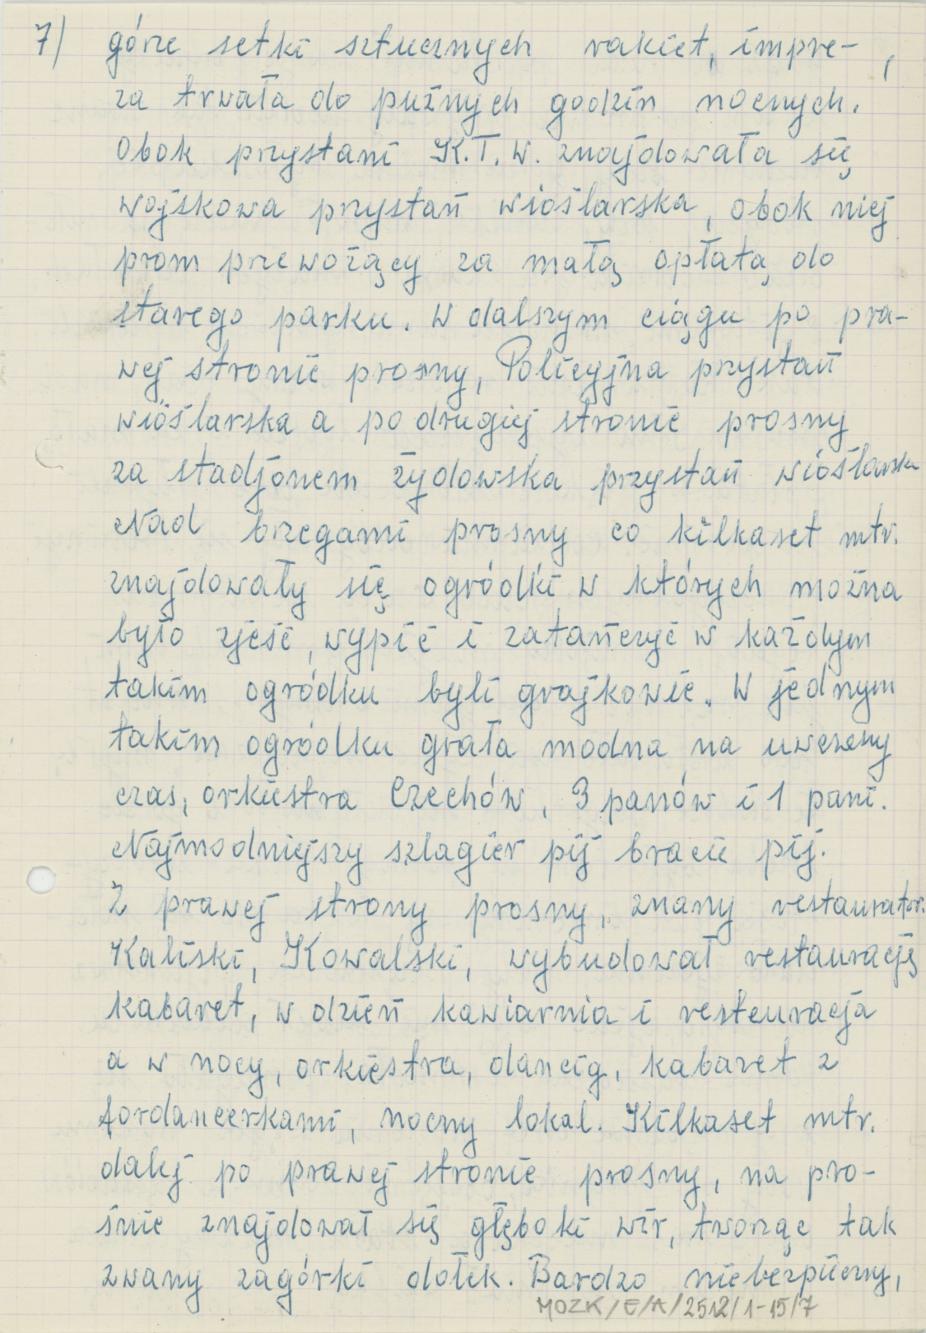 7) górze setki sztucznych rakiet, impre-,
za trwała do puźnych godzin nocnych.
Obok przystani K.T.W. znajdowała się
wojskowa przystań wioślarska, obok niej
prom przewożący za małą opłatą do
starego parku. W dalszym ciągu po pra-
wej stronie prosny, Policyjna przystań
wioślarska a po drugiej stronie prosny
za stadjonem żydowska przystań wioślarska
Nad brzegami prosny co kilkaset mtr.
znajdowały się ogródki w których można
było zjeść, wypić i zatańczyć w każdym
takim ogródku byli grajkowie. W jednym
takim ogródku grała modna na uwczesny
czas, orkiestra Czechów, 3 panów i 1 pani.
Najmodniejszy szlagier pij bracie pij.
Z prawej strony prosny, znany restaurator.
Kaliski, Kowalski, wybudował restaurację
kabaret, w dzień kawiarnia i resteuracja
a w nocy, orkiestra, dancig, kabaret z
fordancerkami, nocny lokal. Kilkaset mtr.
dalej po prawej stronie prosny, na pro-
śnie znajdował się głęboki wir, tworząc tak
zwany zagórki dołek. Bardzo niebezpieczny,
MOZK/E/A/2512/1-15/7